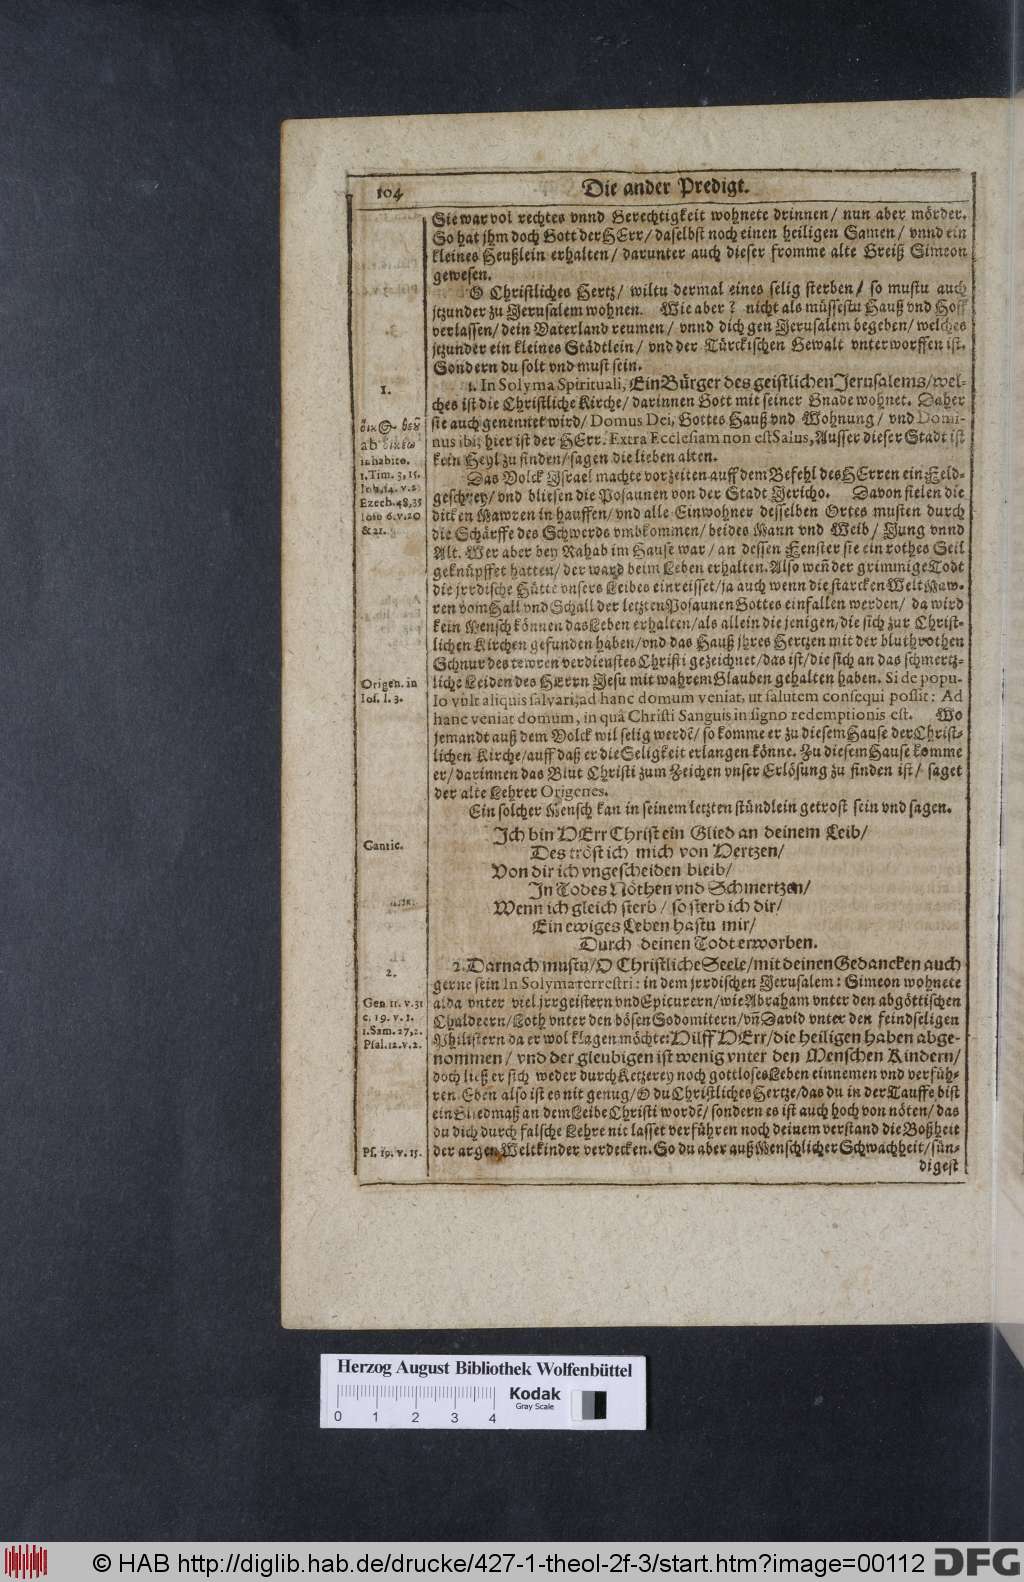 104
Die ander Predigt.
Sie war vol rechtes vnnd Gerechtigkeit wohnete drinnen/ nun aber mörder.
So hat jhm doch Gott der HErr/ daselbst noch einen heiligen Samen/ vnnd ein
kleines Heußlein erhalten/ darunter auch dieser fromme alte Greiß Simeon
gewesen.
O Christliches Hertz/ wiltu dermal eines selig sterben/ so mustu auch
jtzunder zu Jerusalem wohnen. Wie aber? nicht als müssestu Hauß vnd Hoff
verlassen/ dein Vaterland reumen/ vnnd dich gen Jerusalem begeben/ welches
jtzunder ein kleines Städtlein/ vnd der Türckischen Gewalt vnterworffen ist.
Sondern du solt vnd must sein.
1.
1. In Solyma Spirituali, Ein Bürger des geistlichen Jerusalems/ wel-
ches ist die Christliche Kirche/ darinnen Gott mit seiner Gnade wohnet. Daher
οἶκος θεοῦ
sie auch genennet wird/ Domus Dei, Gottes Hauß vnd Wohnung/ vnd Domi-
ab οἰκέω
nus ibi, hier ist der HErr. Extra Ecclesiam non est Salus, Ausser dieser Stadt ist
inhabito.
kein Heyl zu finden/ sagen die lieben alten.
1. Tim. 3, 15.
Das Volck Israel machte vor zeiten auff dem Befehl des HErren ein Feld-
Ioh. 14. v. 2.
geschrey/ vnd bliesen die Posaunen von der Stadt Jericho. Davon fielen die
Ezech. 48, 35
dicken Mawren in hauffen/ vnd alle Einwohner desselben Ortes musten durch
Iosu 6. v. 20
& 21.
die Schärffe des Schwerds vmbkommen/ beides Mann vnd Weib/ Jung vnnd
Alt. Wer aber bey Rahab im Hause war/ an dessen Fenster sie ein rothes Seil
geknüpffet hatten/ der ward beim Leben erhalten. Also wen̄ der grimmige Todt
die jrrdische Hütte vnsers Leibes einreisset/ ja auch wenn die starcken Welt Maw-
ren vom Hall vnd Schall der letzten Posaunen Gottes einfallen werden/ da wird
kein Mensch können das Leben erhalten/ als allein die jenigen/ die sich zur Christ-
lichen Kirchen gefunden haben/ vnd das Hauß jhres Hertzen mit der bluthrothen
Schnur des tewren verdienstes Christi gezeichnet/ das ist/ die sich an das schmertz-
Origen. in
liche Leiden des HErrn Jesu mit wahrem Glauben gehalten haben. Si de popu-
Ios. l. 3.
lo vult aliquis salvari, ad hanc domum veniat, ut salutem consequi possit: Ad
hanc veniat domum, in quâ Christi Sanguis in signo redemptionis est. Wo
jemandt auß dem Volck wil selig werdē/ so komme er zu diesem Hause der Christ-
lichen Kirche/ auff daß er die Seligkeit erlangen könne. Zu diesem Hause komme
er/ darinnen das Blut Christi zum Zeichen vnser Erlösung zu finden ist/ saget
der alte Lehrer Origenes.
Ein solcher Mensch kan in seinem letzten stündlein getrost sein vnd sagen.
Ich bin HErr Christ ein Glied an deinem Leib/
Cantic.
Des tröst ich mich von Hertzen/
Von dir ich vngescheiden bleib/
In Todes Nöthen vnd Schmertzen/
Wenn ich gleich sterb/ so sterb ich dir/
Ein ewiges Leben hastu mir/
Durch deinen Todt erworben.
2.
2. Darnach mustu/ O Christliche Seele/ mit deinen Gedancken auch
gerne sein In Solyma terrestri: in dem jrrdischen Jerusalem: Simeon wohnete
Gen. 11. v. 31
alda vnter viel jrrgeistern vnd Epicurern/ wie Abraham vnter den abgöttischen
c. 19. v. 1.
Chaldeern/ Loth vnter den bösen Sodomitern/ vn̄ David vnter den feindseligen
1. Sam. 27, 2.
Philistern da er wol klagen möchte: Hilff HErr/ die heiligen haben abge-
Psal. 12. v. 2.
nommen/ vnd der gleubigen ist wenig vnter den Menschen Kindern/
doch ließ er sich weder durch Ketzerey noch gottloses Leben einnemen vnd verfüh-
ren. Eben also ist es nit genug/ O du Christliches Hertze/ das du in der Tauffe bist
ein Gliedmaß an dem Leibe Christi wordē/ sondern es ist auch hoch von nöten/ das
du dich durch falsche Lehre nit lasset verführen noch deinem verstand die Boßheit
Ps. 19. v. 15.
der argen Weltkinder verdecken. So du aber auß Menschlicher Schwachheit/ sün-
digest
Herzog August Bibliothek Wolfenbüttel
0 1 2 3 4
Kodak
Gray Scale
© HAB http://diglib.hab.de/drucke/427-1-theol-2f-3/start.htm?image=00112
DFG